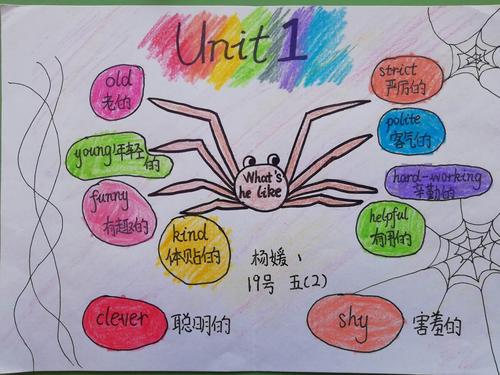 Unit 1
old
老的
young年轻的
funny
有趣的
kind
体贴的
What's
he like
strict
严厉的
polite
客气的
hard-working
辛勤的
helpful
有用的
杨媛、
19号 五(2)
clever 聪明的
shy 害羞的